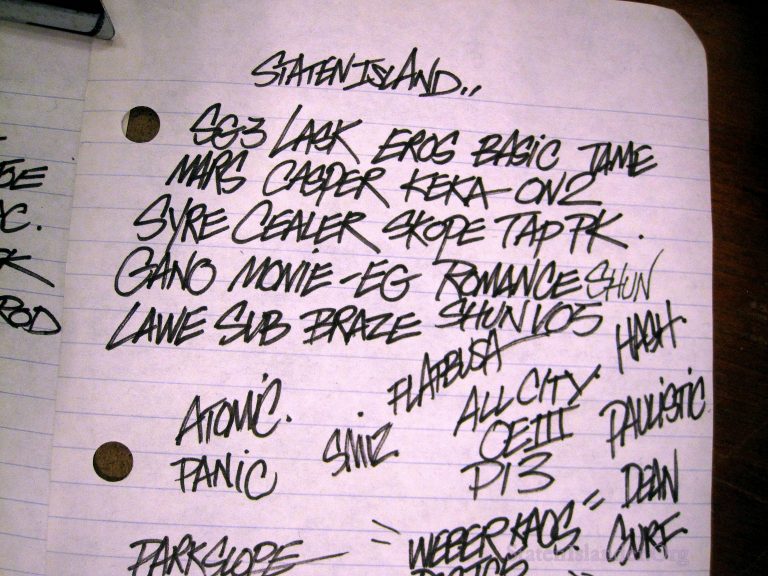 STATEN ISLAND..
SG3 LASK EROS BASIC TAME
MARS CASPER KEKA-ON2
SYRE CEALER SKOPE TAP PK.
GANO MOVIE-EG ROMANCE SHUN
LAWE SUB BRAZE SHUN VO5
FLATBUSH
HASH.
ATOMIC.
SMIZ.
ALL CITY
OEIII
PAULISTIC
PANIC
P13
DEAN
PARK SLOPE
"WEBER KAOS."
SURF
5E
ROD